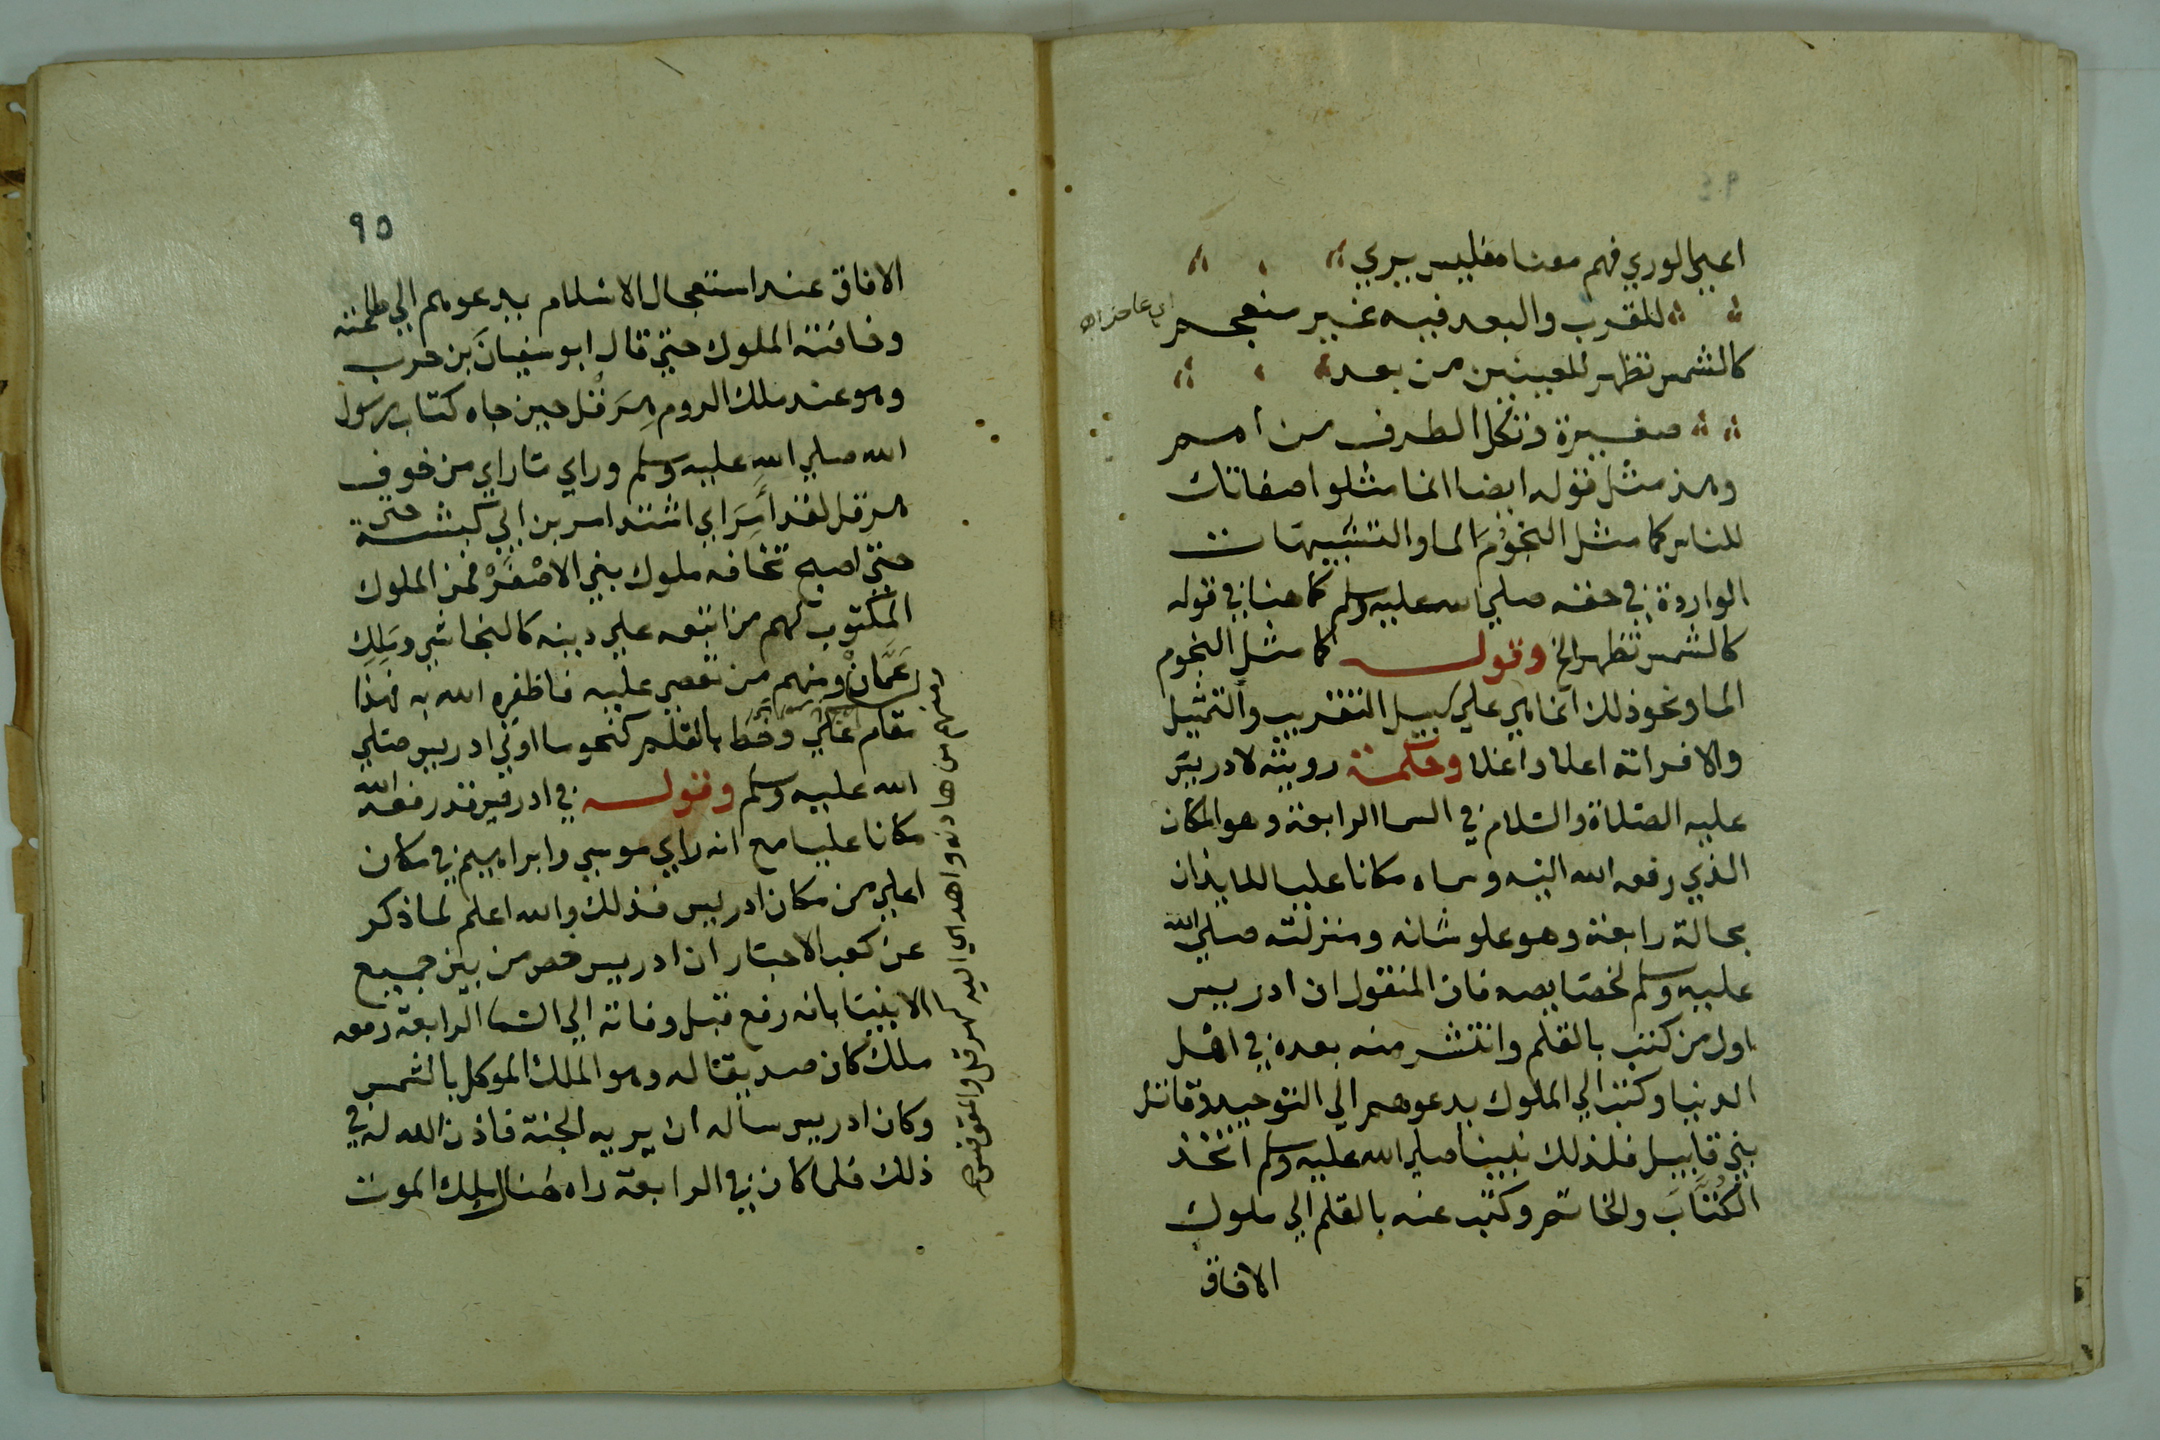 اعيي الوري فهم معناه فليس يري
للقرب والبعد فيه غير منفحم
اي عاجز اه
كالشمس تظهر للعينين من بعد
صغيرة وتكل الطرف من امم
وهذ مثل قوله ايضا انما مثلوا صفاتك
للناس كما مثل النجوم الماء والتشبيهات
الواردة في حقه صلي الله عليه وسلم كما هنا في قوله
كالشمس تظهر الخ وقوله كما مثل النجوم
الما ونحو ذلك انما هي علي سبيل التقريب والتمثيل
والا فذاته اعلا واغلا وحكمة رويته لادريس
عليه الصلاة والسلام في السما الرابعة وهو المكان
الذي رفعه الله اليه وسماه مكانا عليا للايذان
بحالة رابعة وهو علو شانه ومنزلته صلي الله
عليه وسلم لخصايصه فان المنقول ان ادريس
اول من كتب بالقلم وانتشر منه بعده في اهل
الدنيا وكتب الي الملوك يدعوهم الي التوحيد وقاتل
بني قابيل فلذلك نبينا صلي الله عليه وسلم اتخذ
الكُتَّابَ والخاتم وكتب عنه بالقلم الي ملوك
الافاق
٩٥
الافاق عند استفحال الاسلام يدعوهم الي طاعته
وخافته الملوك حتي قال ابو سفيان بن حرب
وهو عند ملك الروم هرقل حين جاه كتاب رسول
الله صلي الله عليه وسلم وراي ما راي من خوف
هرقل لقد أَمِرَ اي اشتد امر بن ابي كبشة حتي
حتي اصبح تخافه ملوك بني الاصفر فمن الملوك
المكتوب لهم من اتبعه علي دينه كالنجاشي وملك
عَمَّان ومنهم من تعصي عليه فاظفره الله به فهذا
مقام عَلي وخط بالقلم كنحو ما اوتي ادريس صلي
الله عليه وسلم وقوله في ادريس ورفعه الله
مكانا عليا مع انه راي موسي وابراهيم في مكان
اعلي من مكان ادريس فذلك والله اعلم لما ذكر
عن كعب الاحبار ان ادريس خص من بين جميع
الانبيا بانه رفع قبل وفاته الي السما الرابعة رفعه
ملك كان صديقا له وهو الملك الموكل بالشمس
وكان ادريس ساله ان يريه الجنة فاذن الله له في
ذلك فلما كان في الرابعة راه هناك ملك الموت
ومنهم من هادنه واهدي اليه كهرقل والمقوقس اه